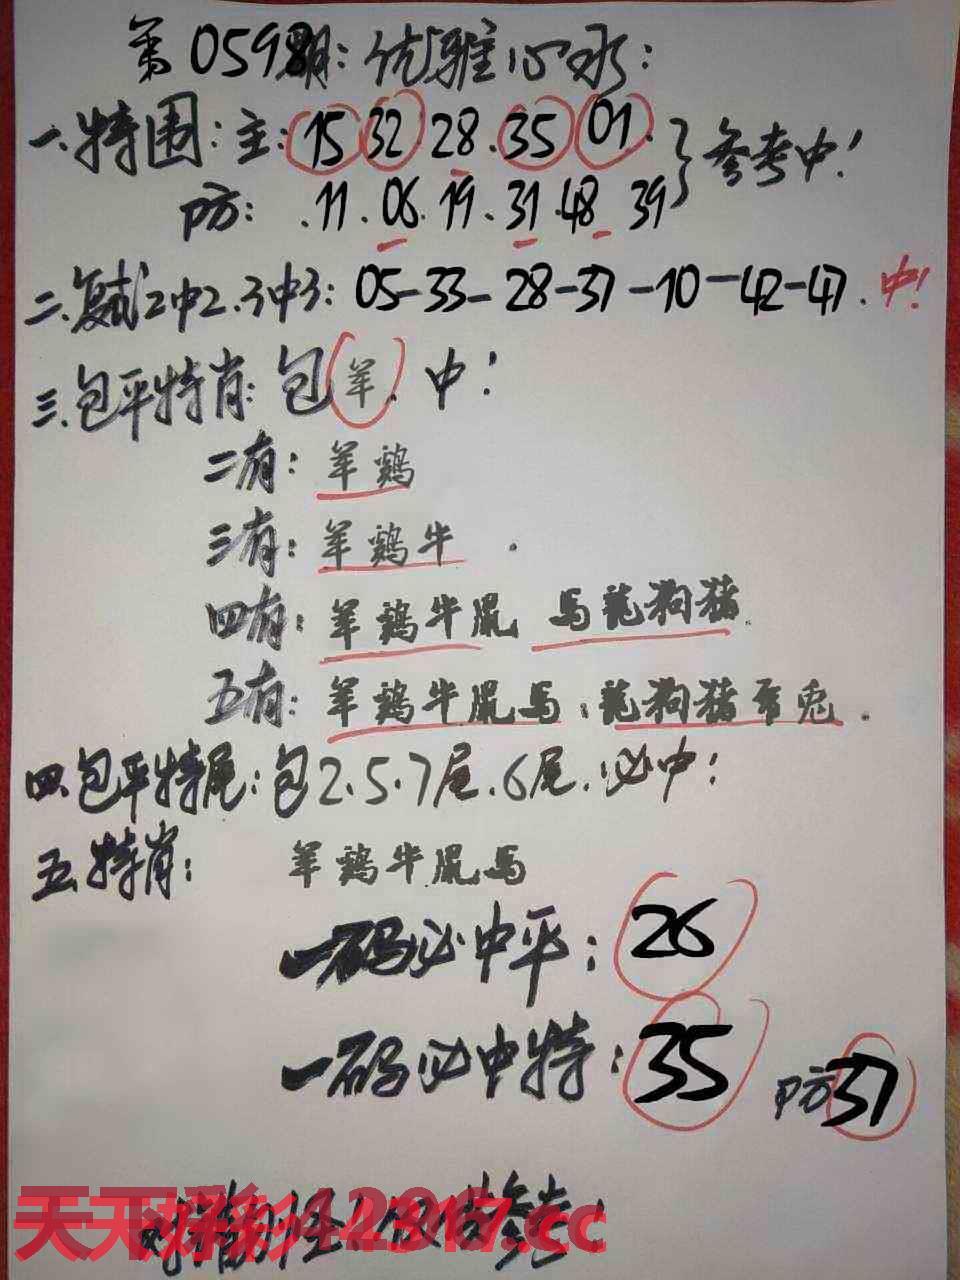 第0598期:优雅心水:
一.特围:主:15 32 28.35 01.}参考中!
防:.11.06.19.31.48.39
二.复试2中2.3中3:05-33-28-37-10-42-47.中!
三.包平特肖:包羊.中!
二有:羊鸡
三有:羊鸡牛.
四有:羊鸡牛鼠 马龍狗猪.
五有:羊鸡牛鼠马:龍狗猪 兔.
四.包平特尾:包2.5.7尾.6尾.必中!
五.特肖: 羊鸡牛鼠马
一码必中平:26
一码必中特:35 防37
参考!
天下彩 .cc